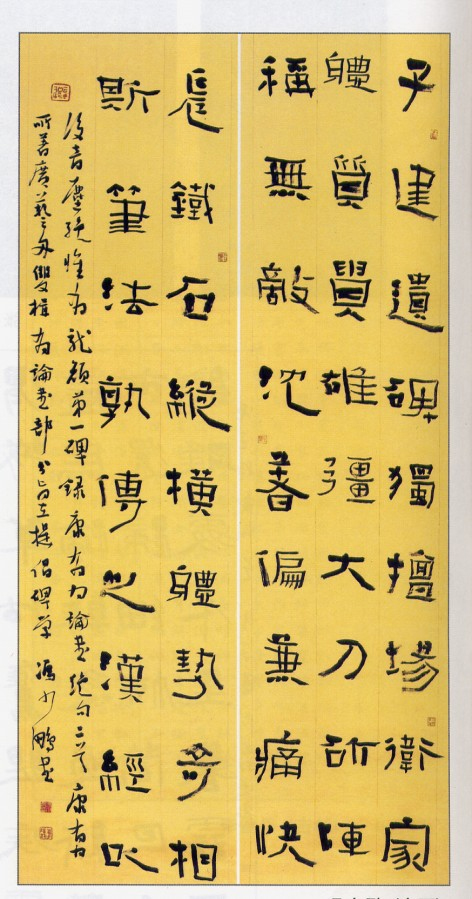 子建遺碑獨擅場衛家
體質貴雄彊大刀斫陣
稱無敵沈著偏兼痛快
長鐵石縱橫體勢奇相
斯筆法孰傳之漢經以
後音塵絕惟有龍顏第一碑錄康有為論書絕句二首康有為
所著廣藝舟雙楫為論書部分旨在提倡碑學馮少鵬書